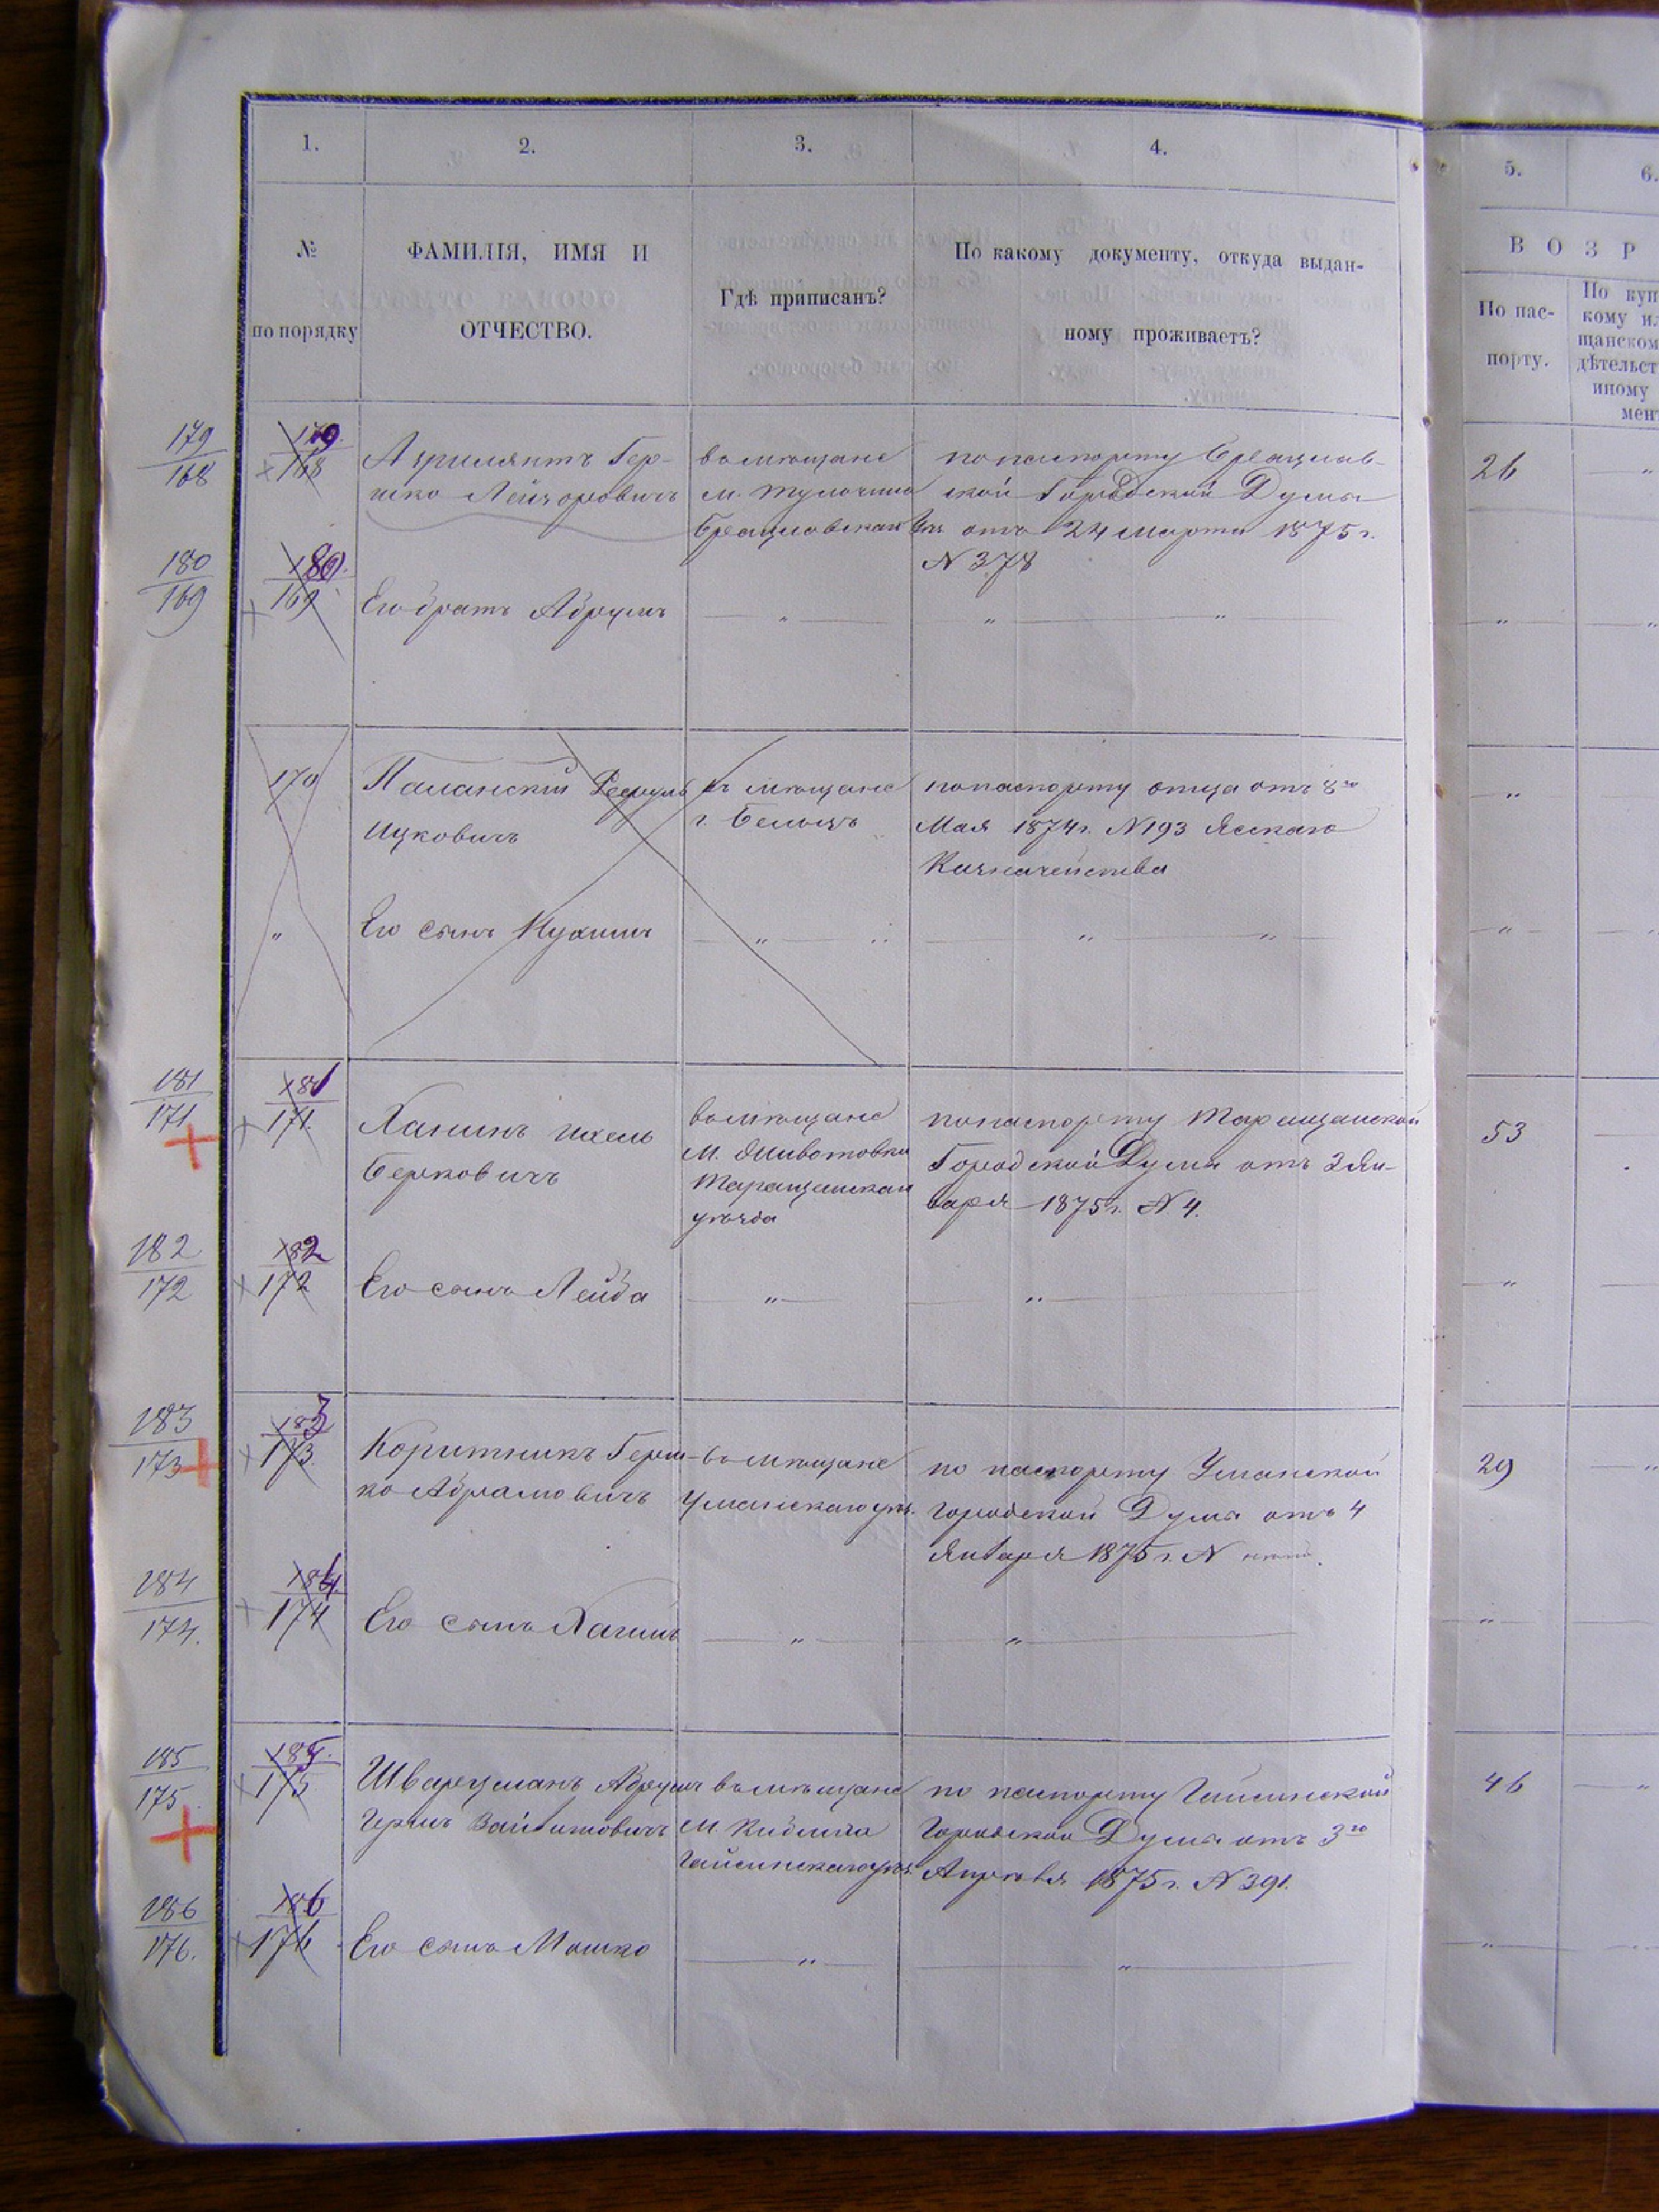 1. 2. 3. 4. 5. 6.
№ по порядку
ФАМИЛІЯ, ИМЯ И ОТЧЕСТВО.
Гдѣ приписанъ?
По какому документу, откуда выдан-
ному проживаетъ?
В О З Р
По пас-
порту.
По куп
кому ил
щанском
дѣтельст
иному
мен
179
168
179.
168
Гер-
шко Лейзоровичъ
въ мѣщане
м. Тульчина
Брацлавскаго уѣз
по паспорту Брацлав-
ской Городской Думы
отъ 24 Марта 1875 г.
N 378
26
180
169
180.
169
Его братъ Абрумъ
170
Паланскій
Ицковичъ
въ мѣщане
г. Бельцъ
по паспорту отца отъ 8го
Мая 1874 г. N 193 Ясскаго
Казначейства
Его сынъ Нухимъ
181
171
181
171.
Ханинъ Ихель
Берковичъ
въ мѣщане
м. Животовки
Таращанскаго
уѣзда
по паспорту Таращанской
Городской Думы отъ 3 Ян-
варя 1875 г. N 4.
53
182
172
182
172
Его сынъ Лейба
183
173
183
173.
Коритникъ Герш-
ко Абрамовичъ
въ мѣщане
Уманскаго уѣз.
по паспорту Уманской
Городской Думы отъ 4
Января 1875 г. N
29
184
174.
184.
174
Его сынъ Хаимъ
185
175.
185.
175
Шварцманъ Абрумъ
Гершъ
въ мѣщане
м. Кублича
Гайсинскаго уѣз.
по паспорту Гайсинской
Городской Думы отъ 3го
Апрѣля 1875 г. N 391.
46
186
176.
186
176
Его сынъ Мошко